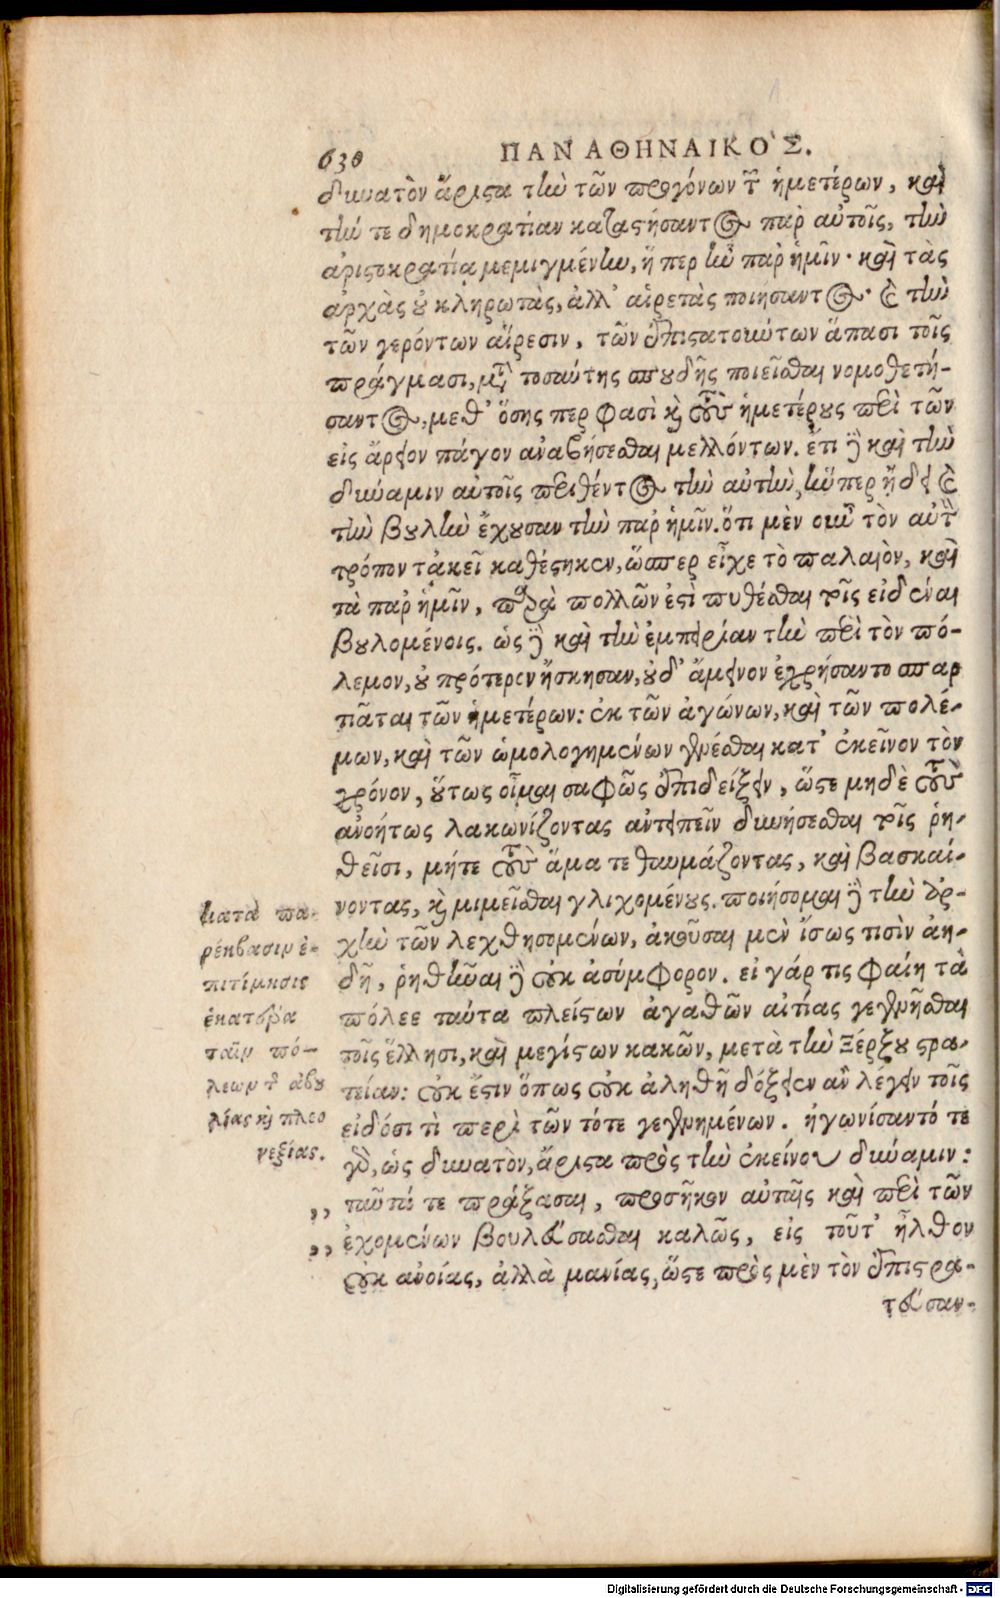 630
ΠΑΝΑΘΗΝΑΙΚΟ`Σ.
δυνατὸν ἄριστα τὴν τῶν προγόνων τῶν ἡμετέρων, καὶ
τήν τε δημοκρατίαν καταστήσαντος παρ αὐτοῖς, τὴν
ἀριστοκρατίᾳ μεμιγμένην, ἥ περ ἦν παρ ἡμῖν· καὶ τὰς
ἀρχὰς οὐ κληρωτὰς, ἀλλ' αἱρετὰς ποιήσαντος· καὶ τὴν
τῶν γερόντων αἵρεσιν, τῶν ἐπιστατούντων ἅπασι τοῖς
πράγμασι, μετὰ τοσαύτης σπουδῆς ποιεῖσθαι νομοθετή-
σαντος, μεθ' ὅσης περ φασὶ καὶ τοὺς ἡμετέρους περὶ τῶν
εἰς ἄρειον πάγον ἀναβήσεσθαι μελλόντων. ἔτι δὲ καὶ τὴν
δύναμιν αὐτοῖς περιθέντος τὴν αὐτὴν, ἥνπερ ᾔδει καὶ
τὴν βουλὴν ἔχουσαν τὴν παρ ἡμῖν. ὅτι μὲν οὖν τὸν αὐτὸν
τρόπον τἀκεῖ καθέστηκεν, ὥσπερ εἶχε τὸ παλαιὸν, καὶ
τὰ παρ ἡμῖν, παρὰ πολλῶν ἐστὶ πυθέσθαι τοῖς εἰδέναι
βουλομένοις. ὡς δὲ καὶ τὴν ἐμπειρίαν τὴν περὶ τὸν πό-
λεμον, οὐ πρότερον ἤσκησαν, οὐδ' ἄμεινον ἐχρήσαντο σπαρ
τιᾶται τῶν ἡμετέρων: ἐκ τῶν ἀγώνων, καὶ τῶν πολέ-
μων, καὶ τῶν ὡμολογημένων γενέσθαι κατ' ἐκεῖνον τὸν
χρόνον, οὕτως οἶμαι σαφῶς ἐπιδείξειν, ὥστε μηδὲ τοὺς
ἀνοήτως λακωνίζοντας ἀντειπεῖν δυνήσεσθαι τοῖς ῥη-
θεῖσι, μήτε τοὺς ἅμα τε θαυμάζοντας, καὶ βασκαί-
νοντας, καὶ μιμεῖσθαι γλιχομένους. ποιήσομαι δὲ τὴν ἀρ-
χὴν τῶν λεχθησομένων, ἀκοῦσαι μὲν ἴσως τισὶν ἀη-
δῆ, ῥηθῆναι δὲ οὐκ ἀσύμφορον. εἰ γάρ τις φαίη τὰ
πόλεε ταύτα πλείστων ἀγαθῶν αἰτίας γεγενῆσθαι
τοῖς ἕλλησι, καὶ μεγίστων κακῶν, μετὰ τὴν Ξέρξου στρα-
τείαν: οὐκ ἔστιν ὅπως οὐκ ἀληθῆ δόξειεν ἂν λέγειν τοῖς
εἰδόσι τὶ περὶ τῶν τότε γεγενημένων. ἠγωνίσαντό τε
γὰρ, ὡς δυνατὸν, ἄριστα πρὸς τὴν ἐκείνου δύναμιν:
ταῦτά τε πράξασαι, προσῆκον αὐταῖς καὶ περὶ τῶν
ἐχομένων βουλεύσασθαι καλῶς, εἰς τοῦτ' ἦλθον
οὐκ ἀνοίας, ἀλλὰ μανίας, ὥστε πρὸς μὲν τὸν ἐπιστρα-
τεύσαν-
κατὰ πα-
ρέκβασιν ἐ-
πιτίμησις
ἑκατέρα
ταῖν πό-
λεων τῆς ἀβου
λίας καὶ πλεο
νεξίας.
,,
,,
Digitalisierung gefördert durch die Deutsche Forschungsgemeinschaft - DFG